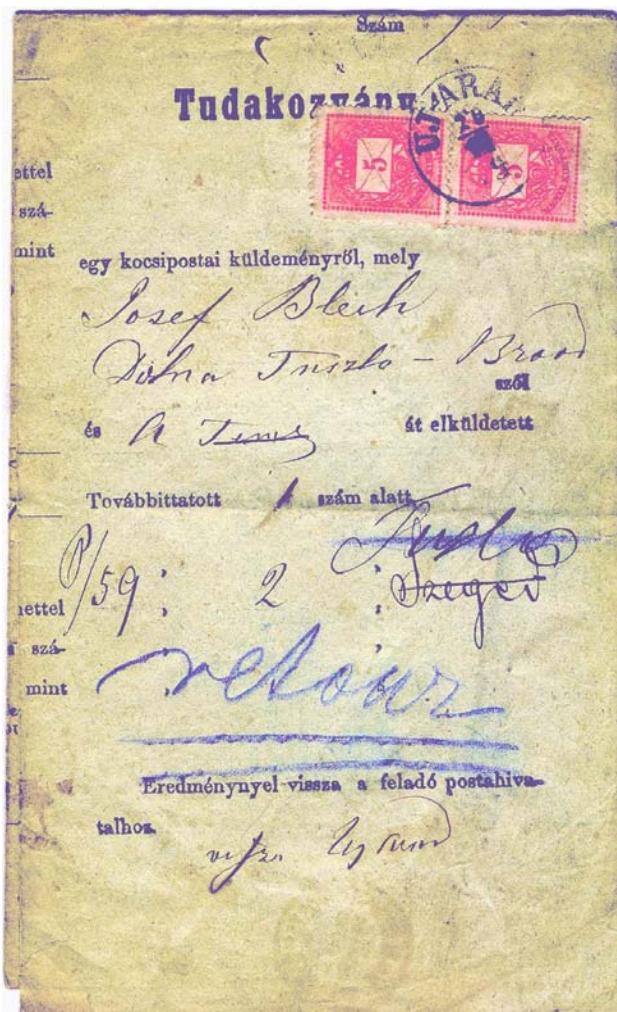 Szám
Tudakozvány
UJ ARAD
5 5
ettel
szá-
mint
egy kocsipostai küldeményről, mely
Josef Bleih
Dolna Tuszla - Brood
szól
és A át elküldetett
Továbbittatott 1 szám alatt
Szeged
P/59 2
nettel
szá-
mint
retour
Eredménynyel vissza a feladó postahiva-
talhoz